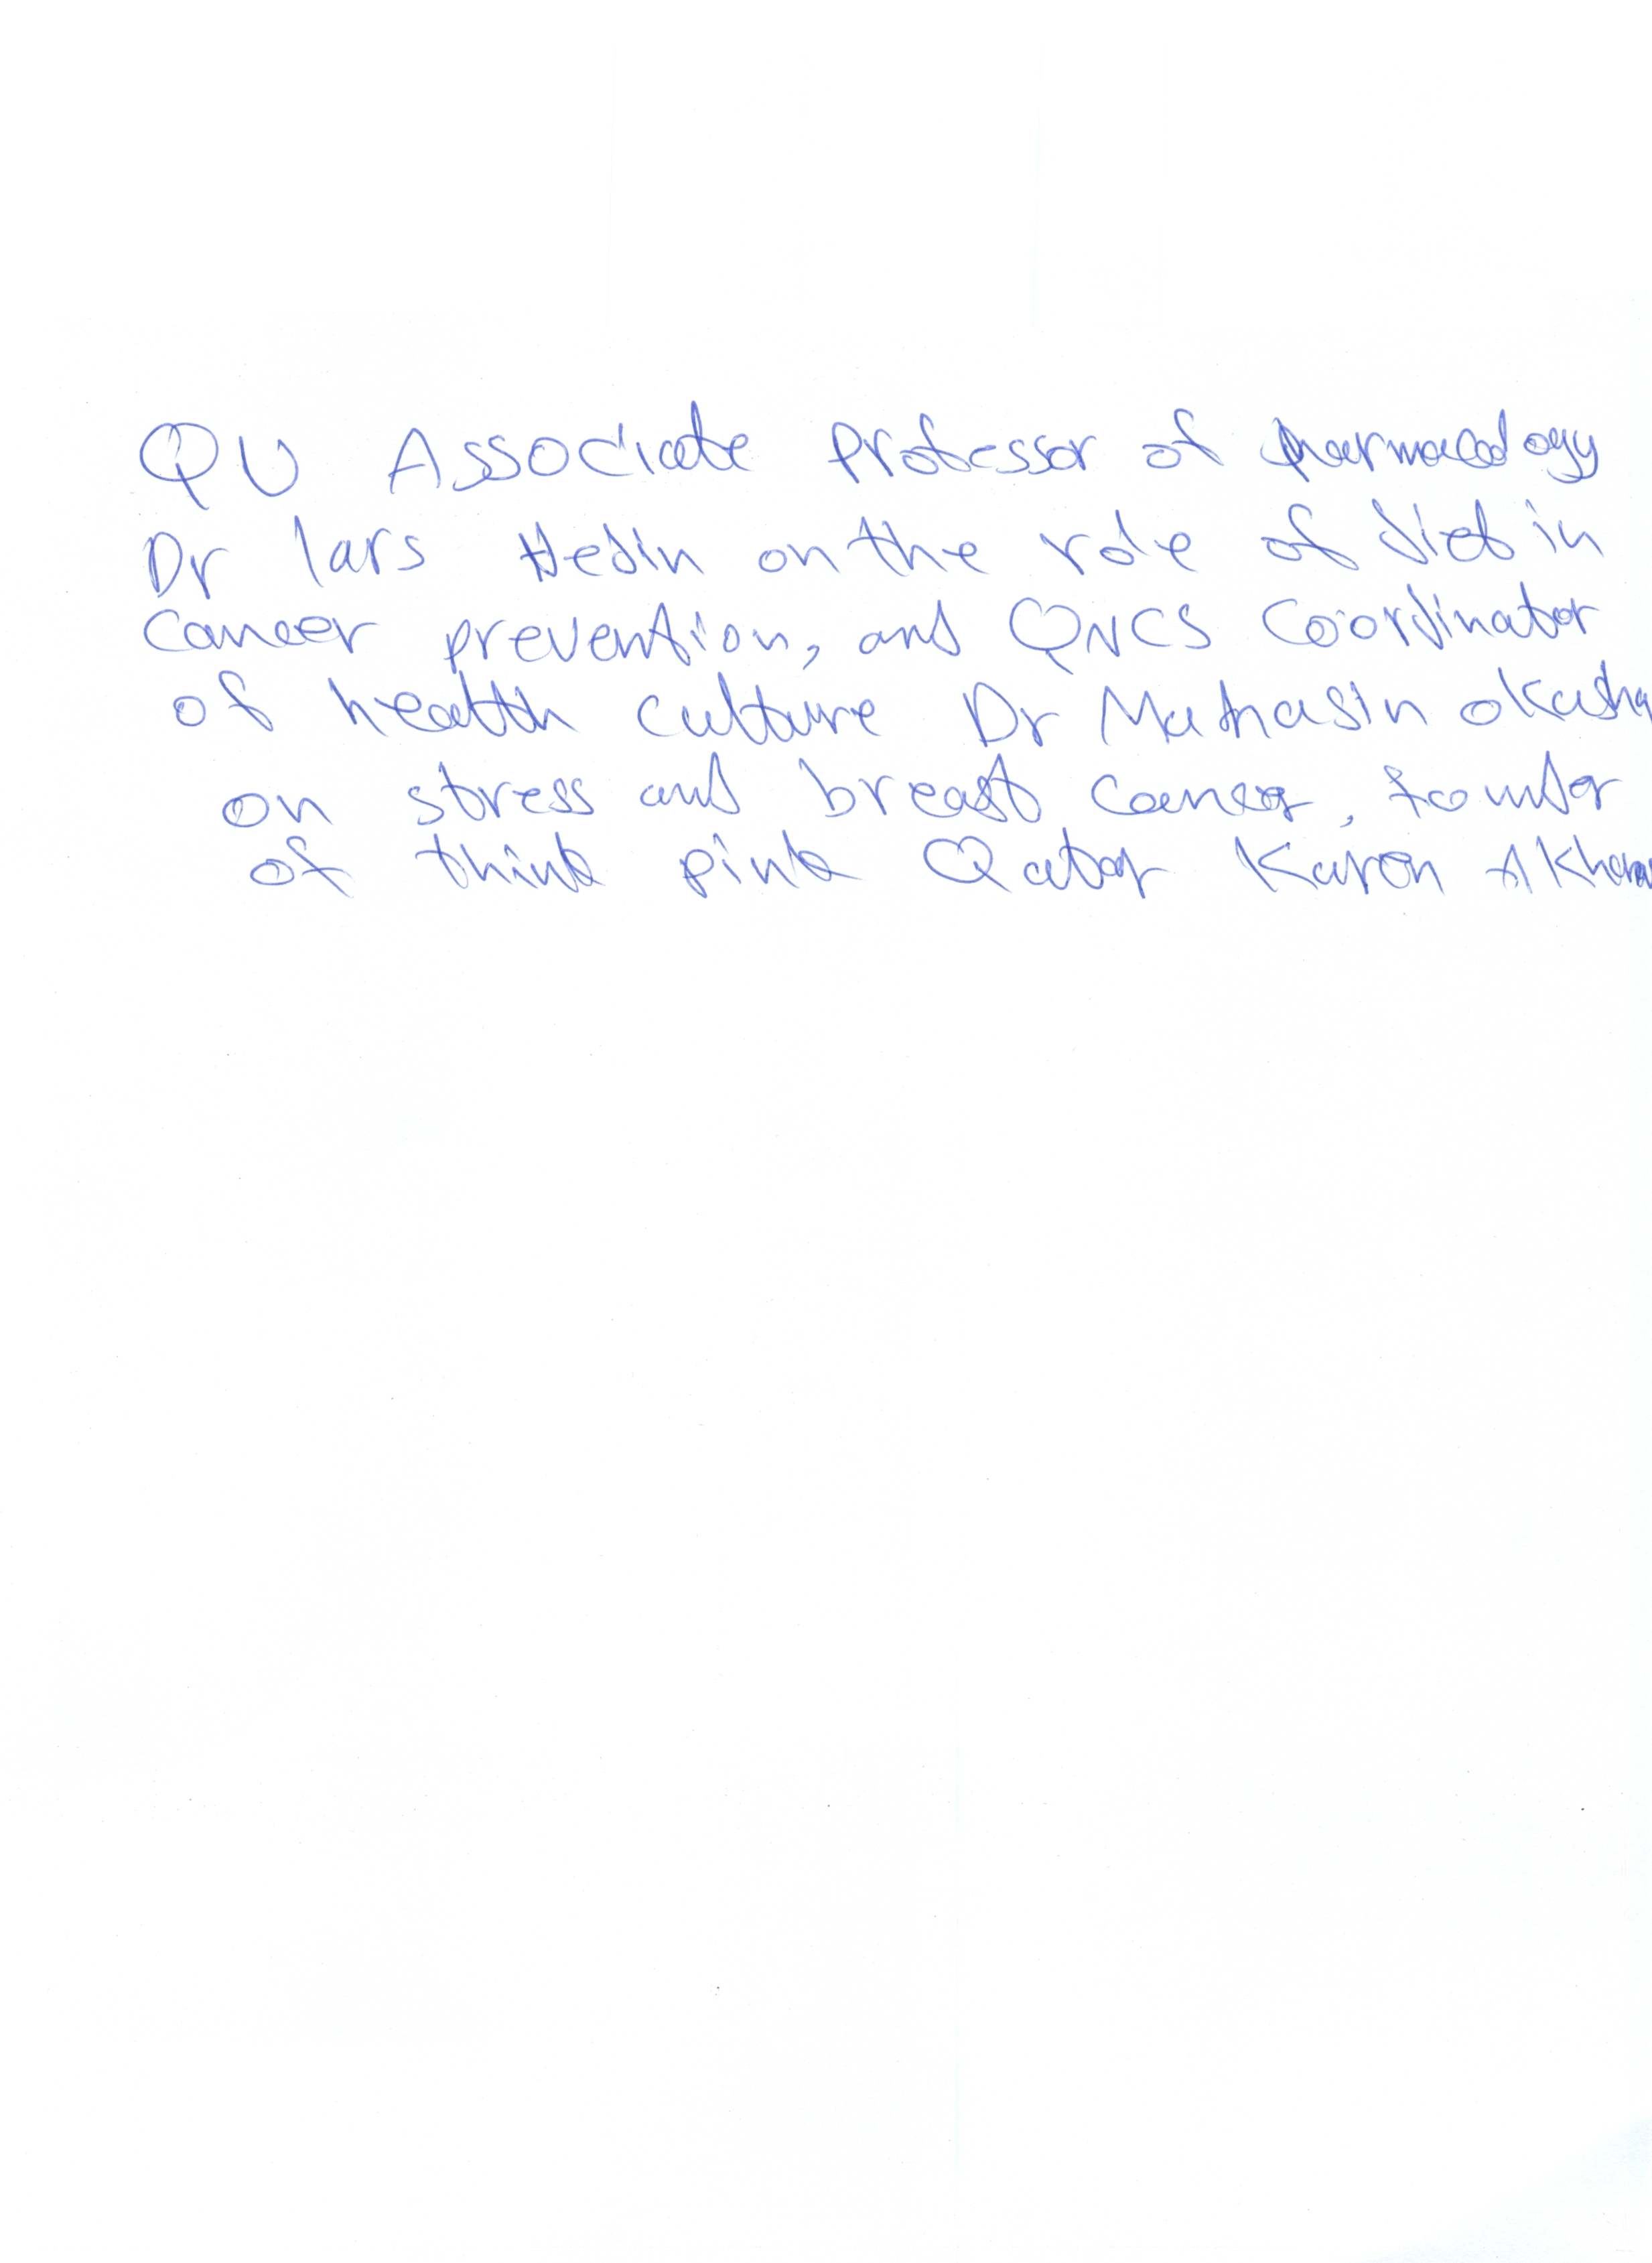 QU Associate Professor of pharmacology
Dr lars Hedin on the role of diet in
cancer prevention, and QNCS Coordinator
of health culture Dr Mathasin okasha
on stress and breast cancer, founder
of think pink Qatar Karen